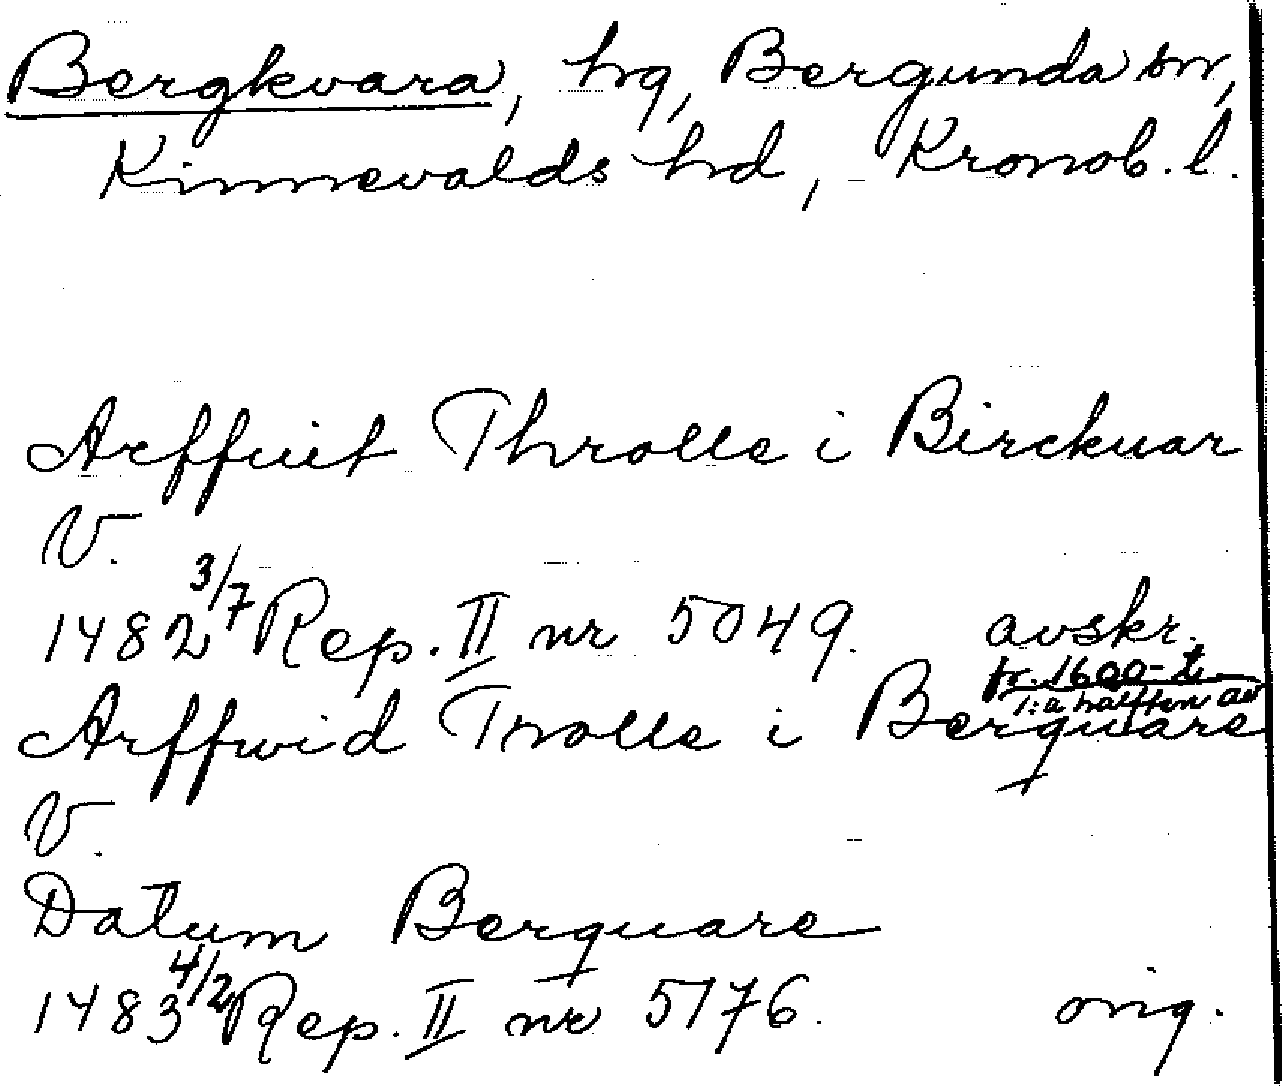 Bergkvara, hg, Bergunda sn,
Kinnevalds hd, Kronob. l.
Arffuit Throlle i Birckuar
V.
1482 3/7 Rep. II nr 5049. avskr.
fr. 1600-t:s
1:a hälften av
Arffwid Trolle i Berquare
V.
Datum Berquare
1483 4/2 Rep. II nr 5176. orig.